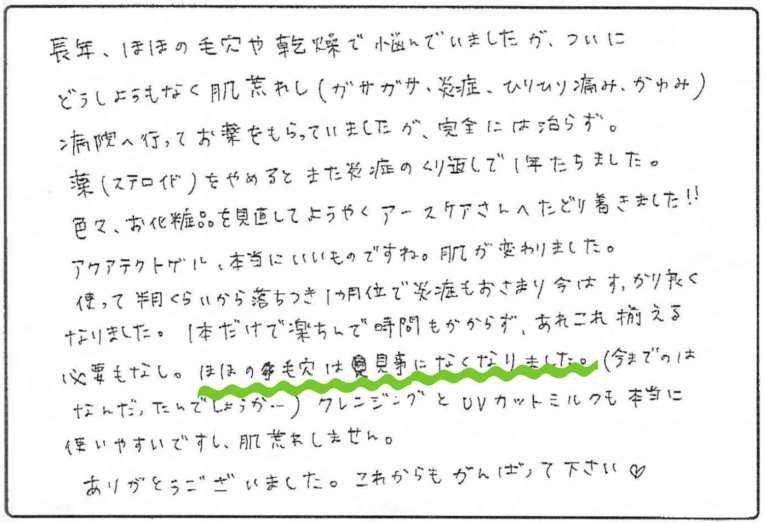 長年、ほほの毛穴や乾燥で悩んでいましたが、ついに
どうしようもなく肌荒れし(ガサガサ、炎症、ひりひり痛み、かゆみ)
病院へ行ってお薬をもらっていましたが、完全には治らず。
薬(ステロイド)をやめるとまた炎症のくり返しで1年たちました。
色々、お化粧品を見直してようやくアースケアさんへたどり着きました!!
アクアテクトゲル、本当にいいものですね。肌が変わりました。
使って半月くらいから落ちつき1カ月位で炎症もおさまり今はすっかり良く
なりました。1本だけで楽ちんで時間もかからず、あれこれ揃える
必要もなし。ほほの毛穴は見事になくなりました。(今までのは
なんだったんでしょうかー)クレンジングとUVカットミルクも本当に
使いやすいですし、肌荒れしません。
ありがとうございました。これからもがんばって下さい♡